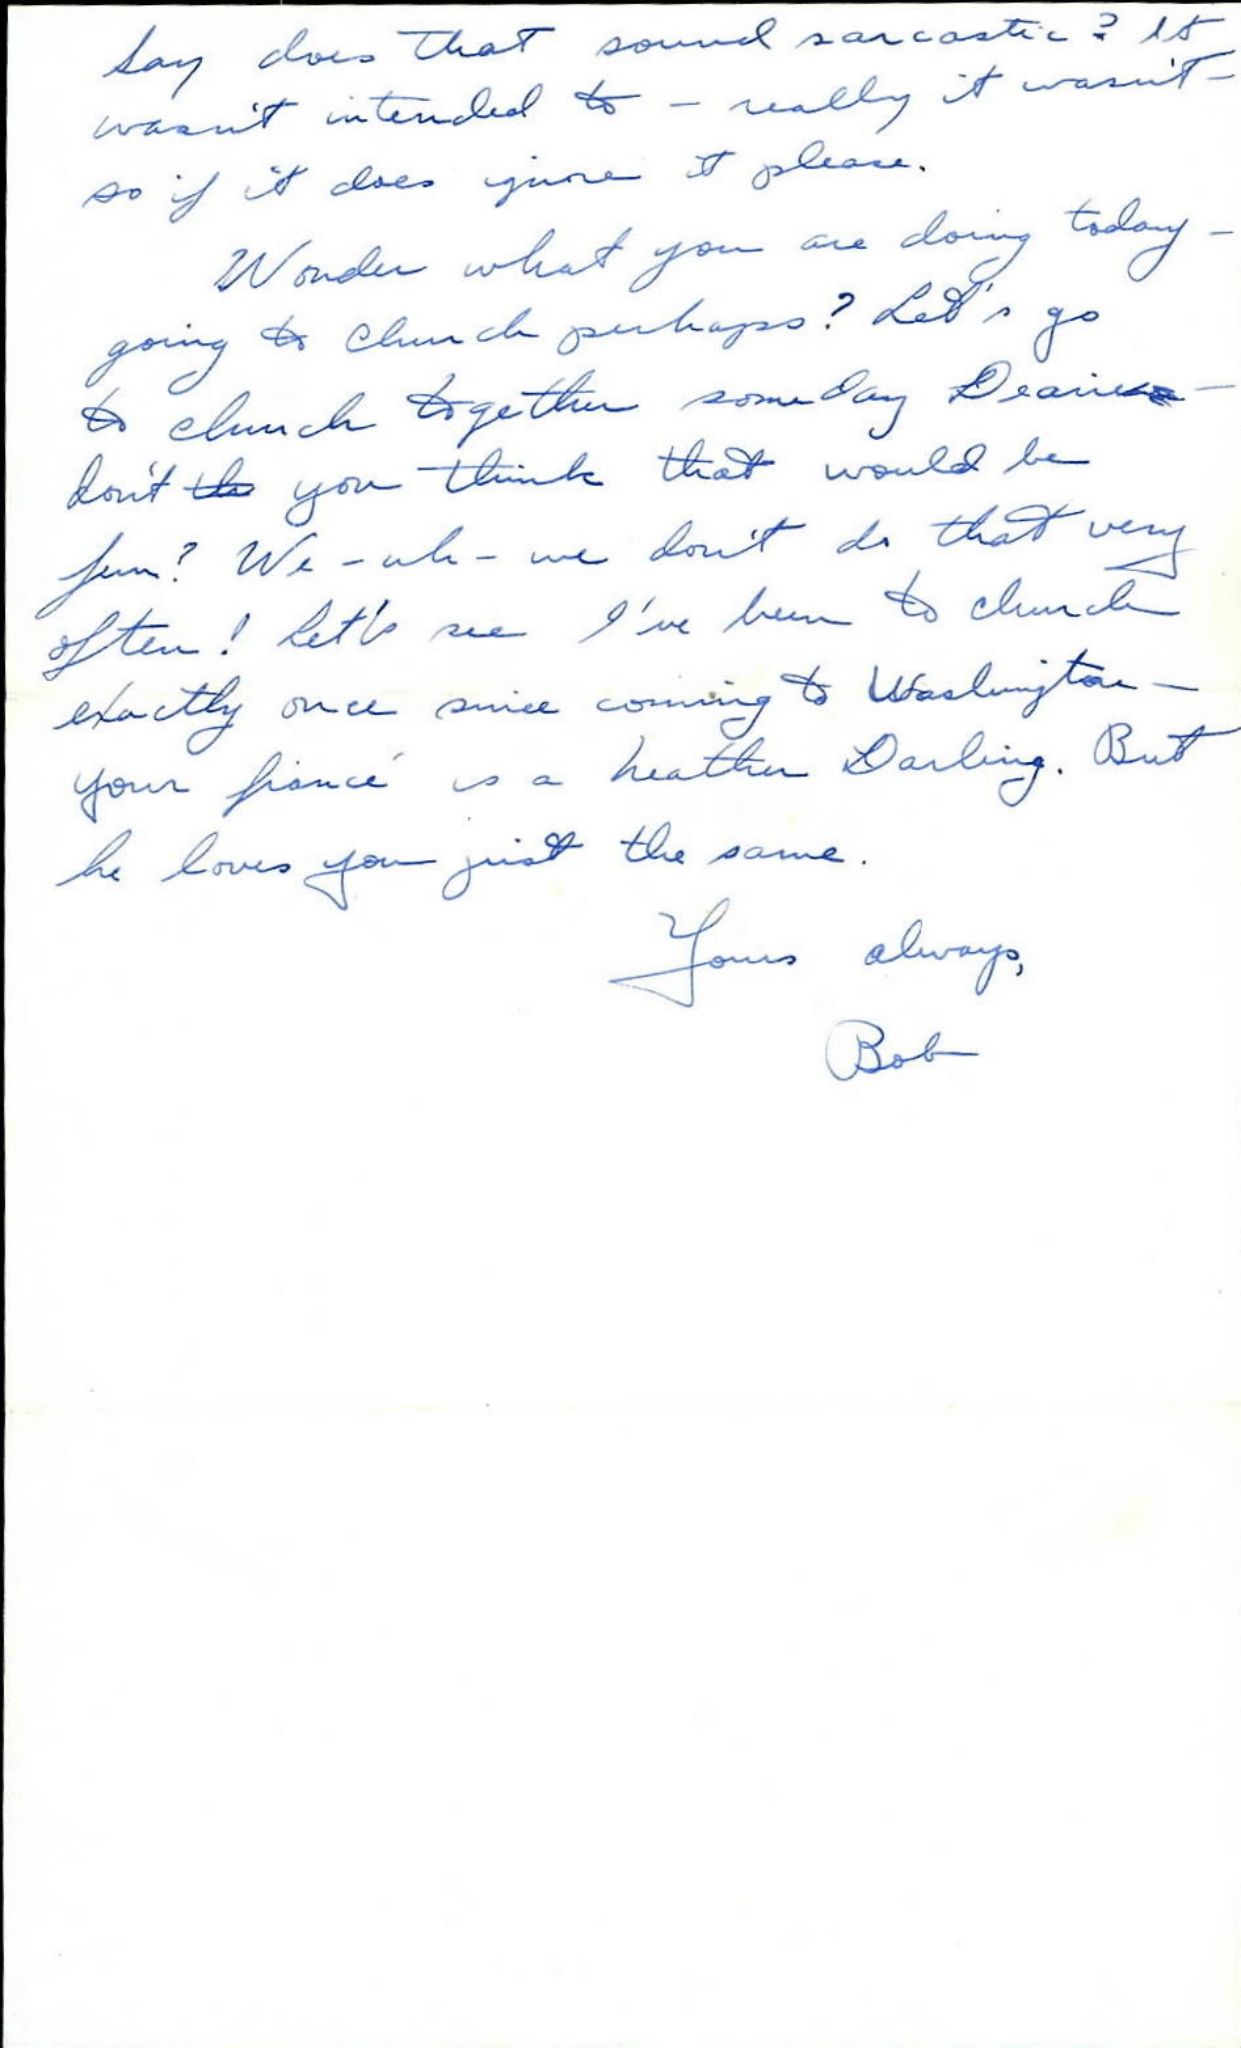 Say does that sound sarcastic? It
wasn't intended to - really it wasn't -
so if it does ignore it please.
Wonder what you are doing today -
going to church perhaps? Let's go
to church together someday Dearie -
don't you think that would be
fun? We - uh - we don't do that very
often! Let's see I've been to church
exactly once since coming to Washington -
your fiancé is a heathen Darling. But
he loves you just the same.
Yours always,
Bob